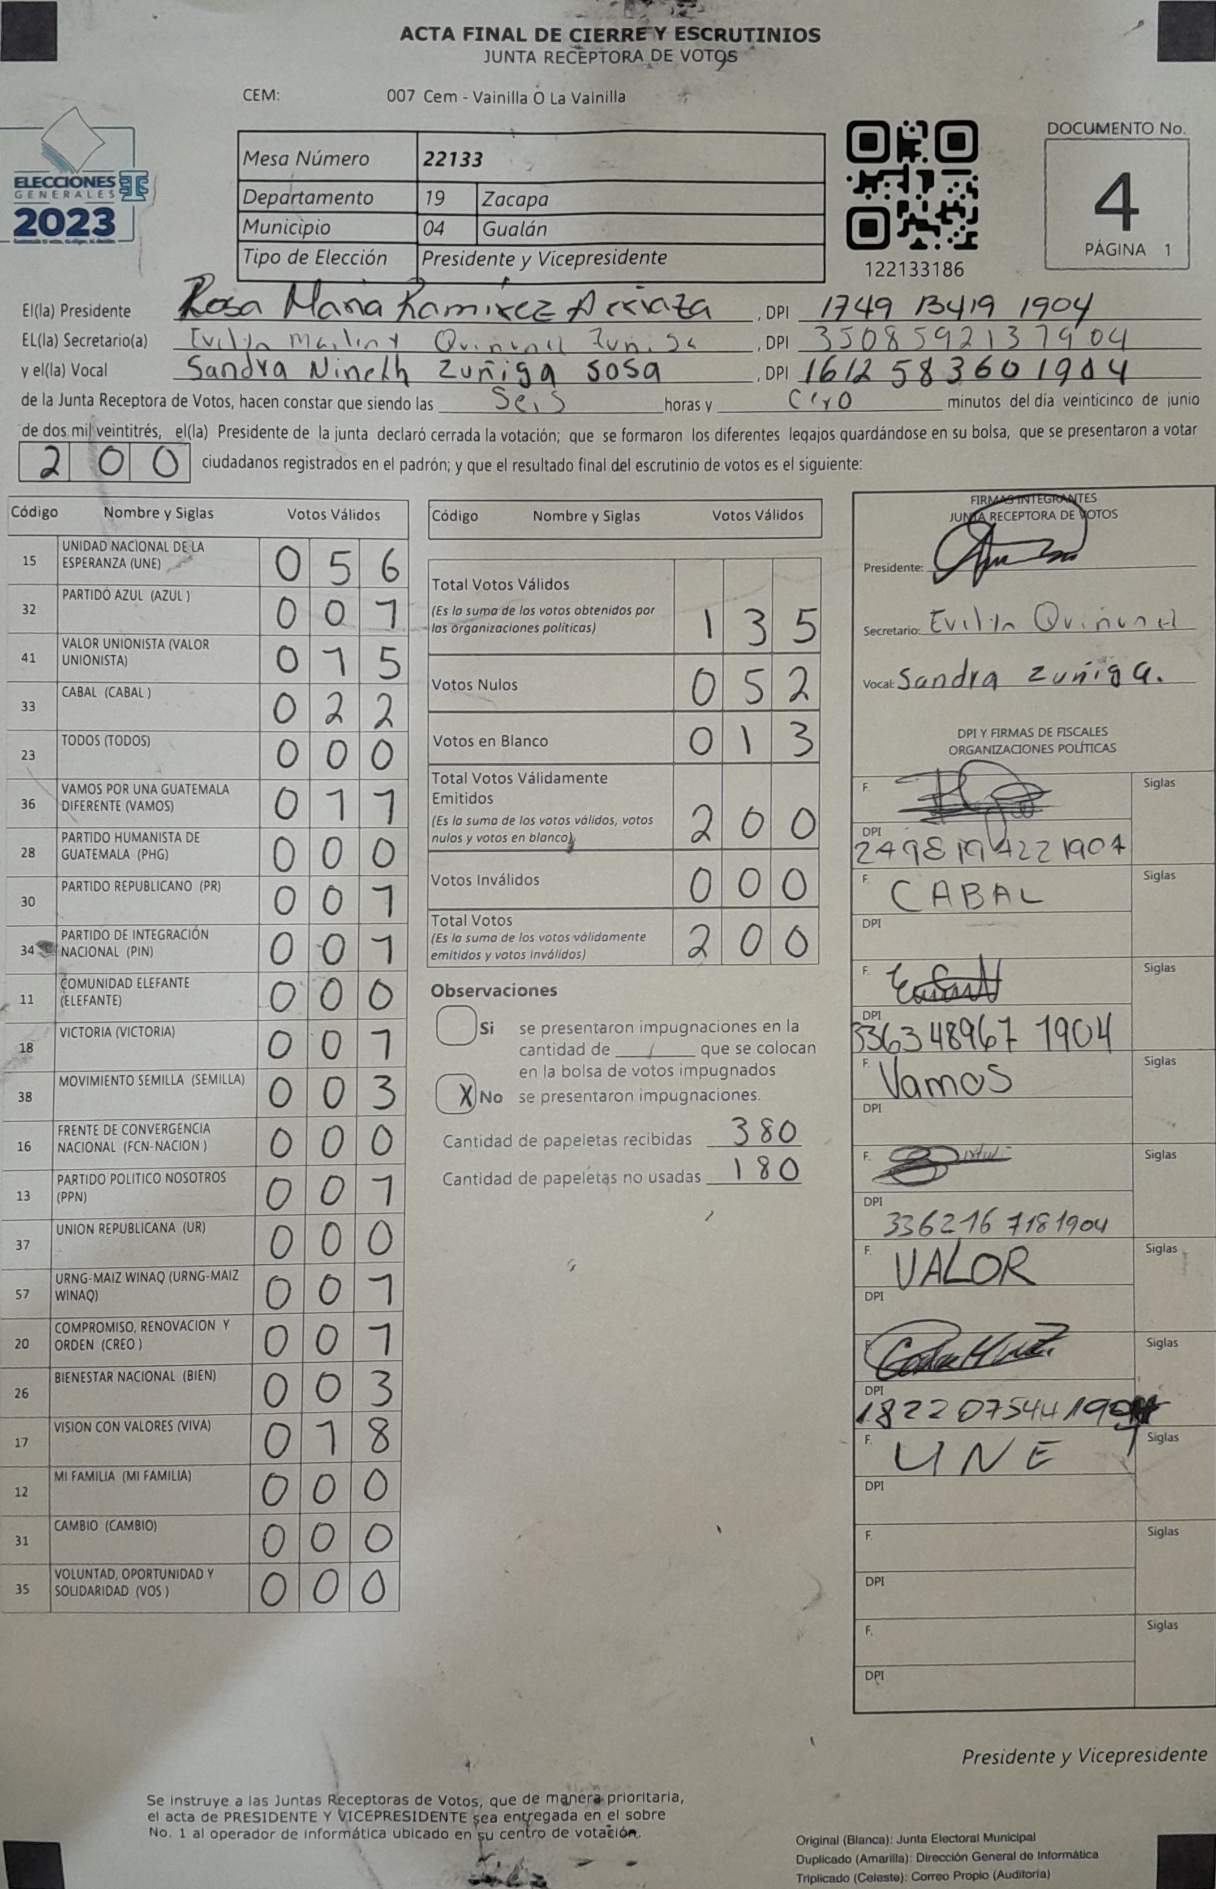 ACTA FINAL DE CIERRE Y ESCRUTINIOS
JUNTA RECEPTORA DE VOTOS
CEM: 007 Cem - Vainilla O La Vainilla
ELECCIONES
GENERALES
2023
Mesa Número 22133
Departamento 19 Zacapa
Municipio 04 Gualán
Tipo de Elección Presidente y Vicepresidente
122133186
DOCUMENTO No.
4
PÁGINA 1
El(la) Presidente Rosa Maria Ramirez Arriaza, DPI 1749 13419 1904
EL(la) Secretario(a) Evilin Mailiny Quinunil Zuniga, DPI 3508592137904
y el(la) Vocal Sandra Nineth Zuñiga Sosa, DPI 1612 58360 1904
de la Junta Receptora de Votos, hacen constar que siendo las Seis horas y Ciro minutos del día veinticinco de junio
de dos mil veintitrés, el(la) Presidente de la junta declaró cerrada la votación; que se formaron los diferentes legajos guardándose en su bolsa, que se presentaron a votar
200 ciudadanos registrados en el padrón; y que el resultado final del escrutinio de votos es el siguiente:
Código Nombre y Siglas Votos Válidos
15 UNIDAD NACIONAL DE LA ESPERANZA (UNE) 0 5 6
32 PARTIDO AZUL (AZUL) 0 0 1
41 VALOR UNIONISTA (VALOR UNIONISTA) 0 1 5
33 CABAL (CABAL) 0 2 2
23 TODOS (TODOS) 0 0 0
36 VAMOS POR UNA GUATEMALA DIFERENTE (VAMOS) 0 1 1
28 PARTIDO HUMANISTA DE GUATEMALA (PHG) 0 0 0
30 PARTIDO REPUBLICANO (PR) 0 0 1
34 PARTIDO DE INTEGRACIÓN NACIONAL (PIN) 0 0 1
11 COMUNIDAD ELEFANTE (ELEFANTE) 0 0 0
18 VICTORIA (VICTORIA) 0 0 1
38 MOVIMIENTO SEMILLA (SEMILLA) 0 0 3
16 FRENTE DE CONVERGENCIA NACIONAL (FCN-NACION) 0 0 0
13 PARTIDO POLITICO NOSOTROS (PPN) 0 0 1
37 UNION REPUBLICANA (UR) 0 0 0
57 URNG-MAIZ WINAQ (URNG-MAIZ WINAQ) 0 0 1
20 COMPROMISO, RENOVACION Y ORDEN (CREO) 0 0 1
26 BIENESTAR NACIONAL (BIEN) 0 0 3
17 VISION CON VALORES (VIVA) 0 1 8
12 MI FAMILIA (MI FAMILIA) 0 0 0
31 CAMBIO (CAMBIO) 0 0 0
35 VOLUNTAD, OPORTUNIDAD Y SOLIDARIDAD (VOS) 0 0 0
Código Nombre y Siglas Votos Válidos
Total Votos Válidos
(Es la suma de los votos obtenidos por
las organizaciones políticas) 1 3 5
Votos Nulos 0 5 2
Votos en Blanco 0 1 3
Total Votos Válidamente
Emitidos
(Es la suma de los votos válidos, votos
nulos y votos en blanco) 2 0 0
Votos Inválidos 0 0 0
Total Votos
(Es la suma de los votos válidamente
emitidos y votos inválidos) 2 0 0
Observaciones
Si se presentaron impugnaciones en la
cantidad de / que se colocan
en la bolsa de votos impugnados
X No se presentaron impugnaciones.
Cantidad de papeletas recibidas 380
Cantidad de papeletas no usadas 180
FIRMAS INTEGRANTES
JUNTA RECEPTORA DE VOTOS
Presidente:
Secretario: Evilin Quinunil
Vocal: Sandra Zuñiga.
DPI Y FIRMAS DE FISCALES
ORGANIZACIONES POLÍTICAS
F. Siglas
DPI
2498 19422 1904
F. CABAL Siglas
DPI
F. Siglas
DPI
3363 48967 1904
F. Vamos Siglas
DPI
F. Siglas
DPI
336216 7181904
F. VALOR Siglas
DPI
F. Siglas
DPI
1822 07544 1904
F. UNE Siglas
DPI
F. Siglas
DPI
F. Siglas
DPI
Presidente y Vicepresidente
Se instruye a las Juntas Receptoras de Votos, que de manera prioritaria,
el acta de PRESIDENTE Y VICEPRESIDENTE sea entregada en el sobre
No. 1 al operador de informática ubicado en su centro de votación.
Original (Blanca): Junta Electoral Municipal
Duplicado (Amarilla): Dirección General de Informática
Triplicado (Celeste): Correo Propio (Auditoría)